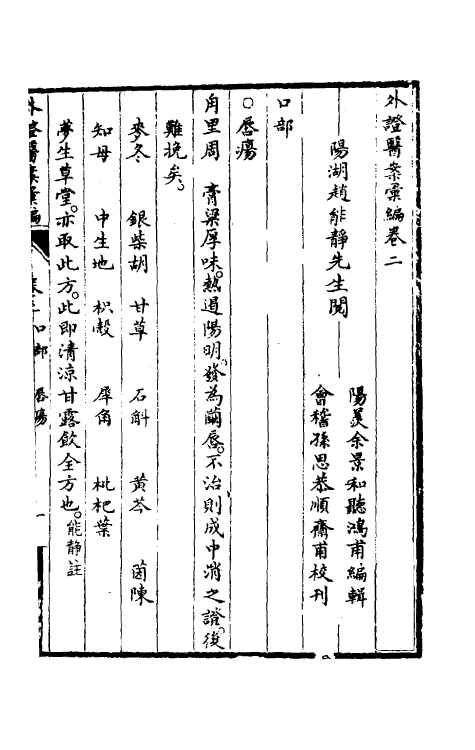 外證醫案彙編卷二
陽羨余景和聽鴻甫編輯
陽湖趙能靜先生閱
會稽孫思恭順齋甫校刊
口部
○唇瘍
角里周 膏粱厚味。熱遏陽明。發為繭唇。不治則成中消之證。後
難挽矣。
麥冬 銀柴胡 甘草 石斛 黃芩 茵陳
知母 中生地 枳殼 犀角 枇杷葉
夢生草堂。亦取此方。此即清涼甘露飲全方也。能靜註
外證醫案彙編 卷二 口部 唇瘍 一